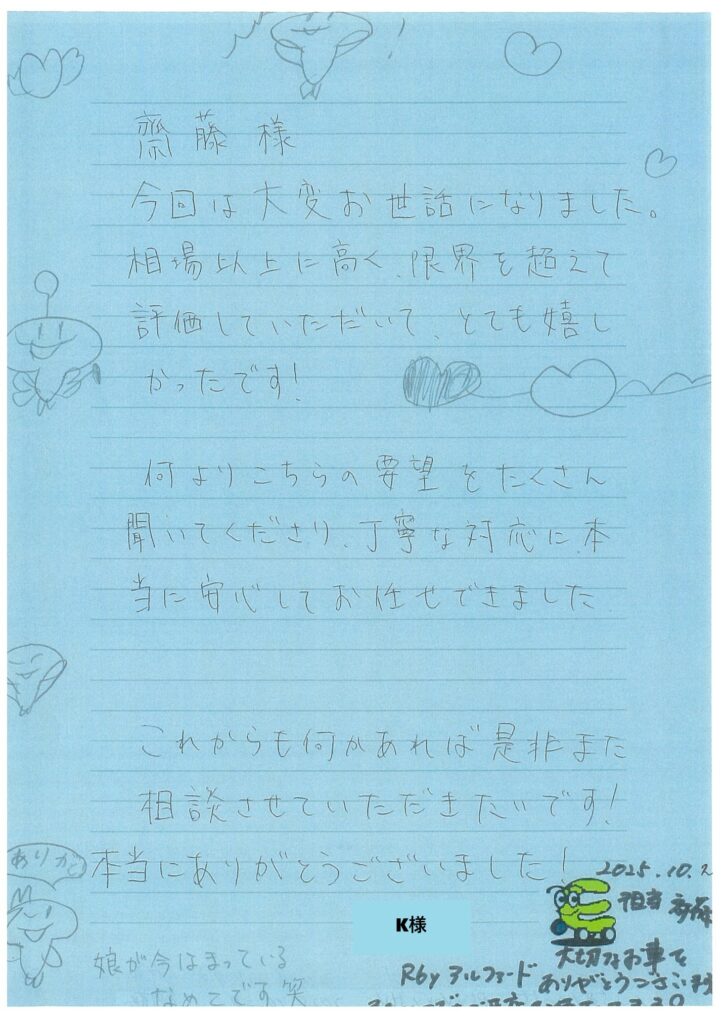 齋藤様
今回は大変お世話になりました。
相場以上に高く、限界を超えて
評価していただいて、とても嬉し
かったです!
何よりこちらの要望をたくさん
聞いてくださり、丁寧な対応に、本
当に安心してお任せできました
これからも何かあれば是非また
相談させていただきたいです!
ありがと
本当にありがとうございました!
2025.10.2
担当
K様
娘が今はまっている
なめこです 笑
大切なお車を
R6y アルファード
ありがとうございます